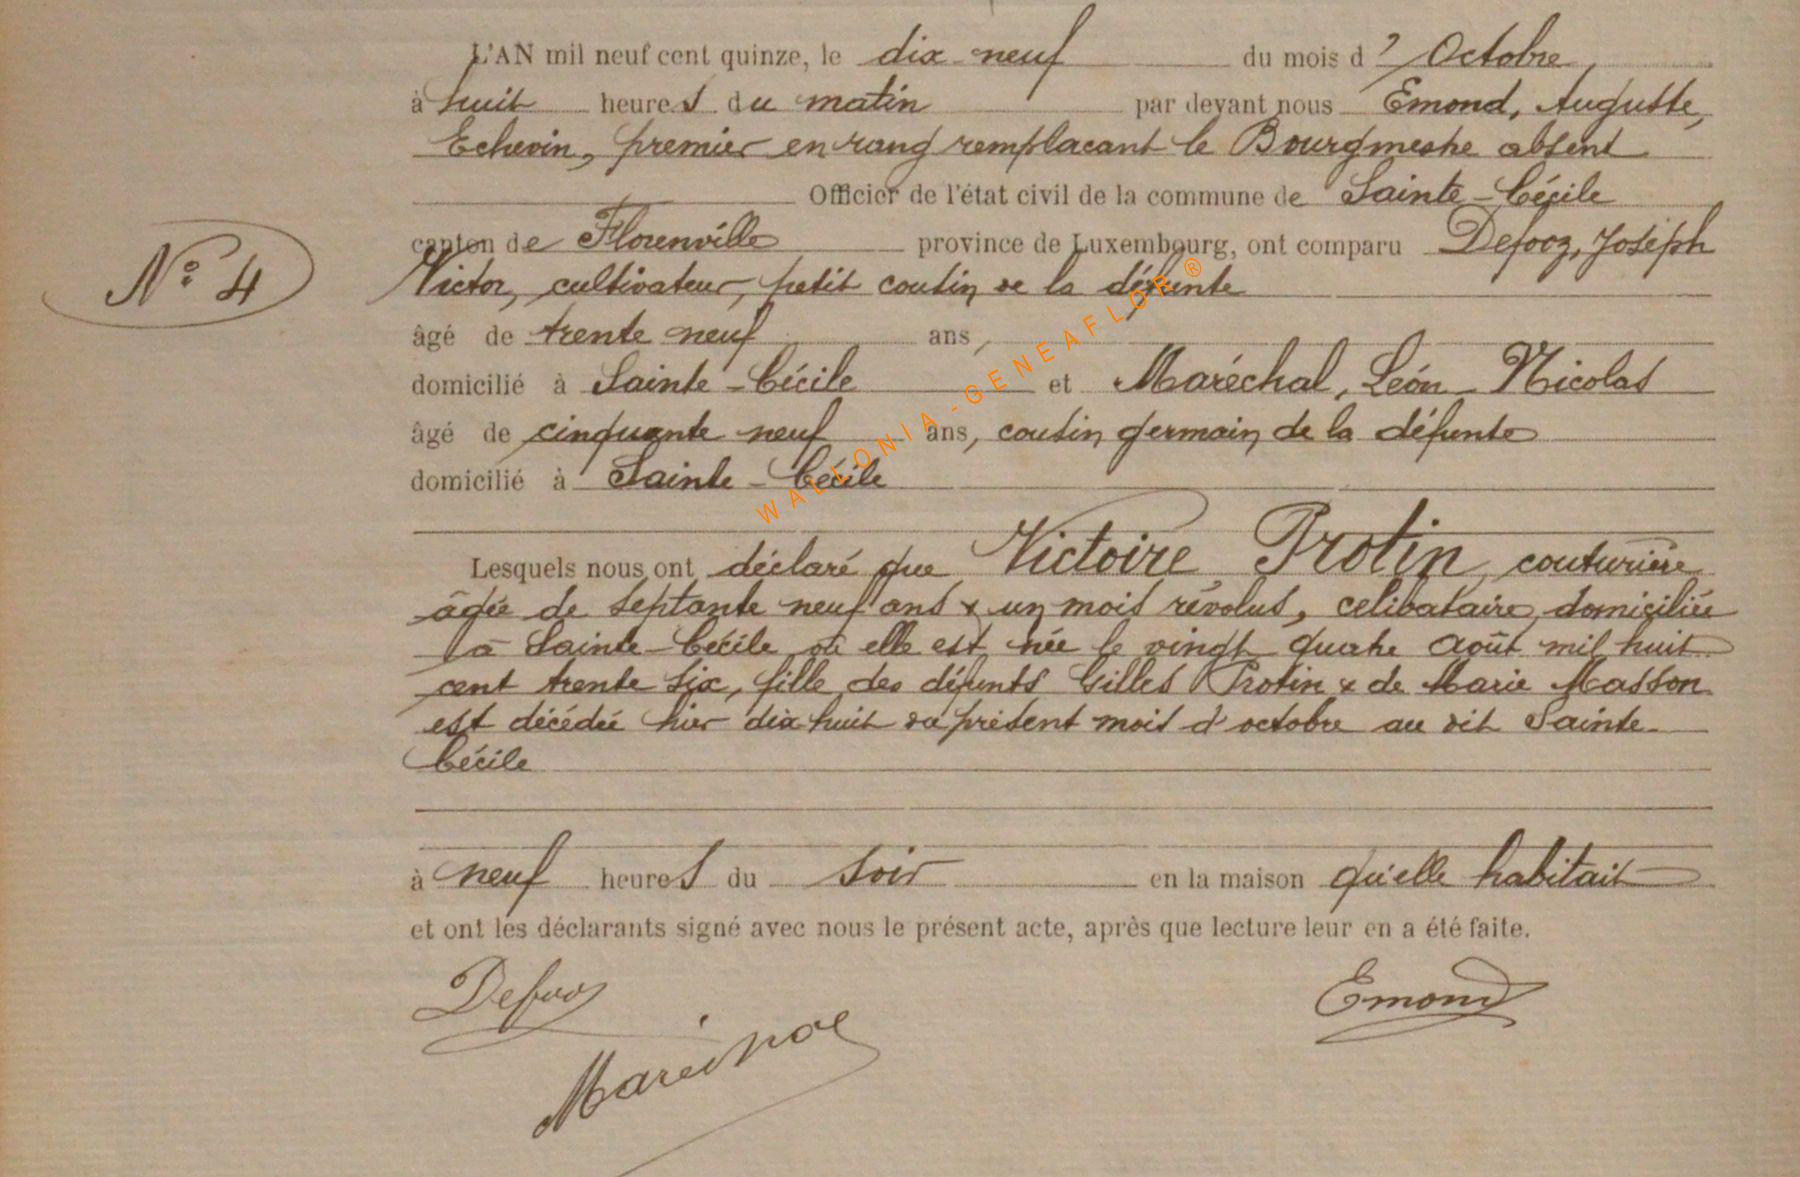 L'AN mil neuf cent quinze, le dix-neuf du mois d' Octobre,
à huit heures du matin par devant nous Emond, Auguste,
Echevin, premier en rang remplacant le Bourgmestre absent
Officier de l'état civil de la commune de Sainte-Cécile
N° 4
canton de Florenville province de Luxembourg, ont comparu Defooz, Joseph
Victor, cultivateur, petit cousin de la défunte
âgé de trente neuf ans,
domicilié à Sainte-Cécile et Maréchal, Léon-Nicolas
âgé de cinquante neuf ans, cousin germain de la défunte
domicilié à Sainte-Cécile
WALLONIA-GENEAFLOR ®
Lesquels nous ont déclaré que Victoire Protin, couturière
âgée de septante neuf ans & un mois révolus, celibataire, domiciliée
à Sainte-Cécile où elle est née le vingt quatre août mil huit
cent trente six, fille des défunts Gilles Protin & de Marie Masson
est décédée hier dix-huit du présent mois d'octobre au dit Sainte-
Cécile
à neuf heures du soir en la maison qu'elle habitait
et ont les déclarants signé avec nous le présent acte, après que lecture leur en a été faite.
Defooz
Emond
Maréchal